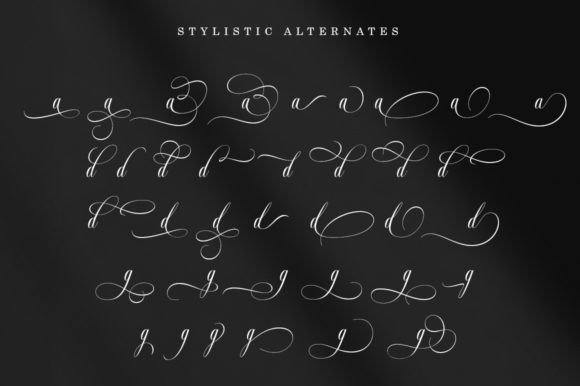 STYLISTIC ALTERNATES
a a a a a a a a a
d d d d d d d d
d d d d d d d
g g g g g g
g g g g g g